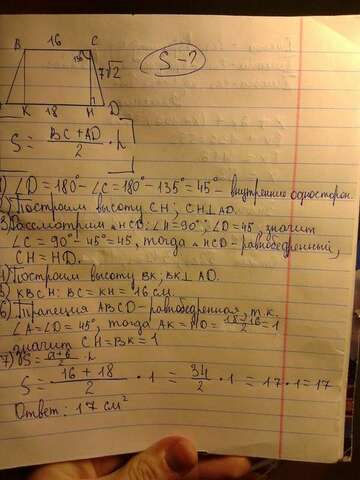 16
B C
135° 7√2
S - ?
K 18 H D
S = BC + AD / 2 · h
1) ∠D = 180° - ∠C = 180° - 135° = 45° - внутренние односторон.
2) Построим высоту CH; CH ⊥ AD.
3) Рассмотрим △HCD: ∠H = 90°; ∠D = 45, значит
∠C = 90° - 45° = 45, тогда △HCD - равнобедренный,
CH = HD.
4) Построим высоту BK; BK ⊥ AD.
5) KBCH: BC = KH = 16 см
6) Трапеция ABCD - равнобедренная, т.к.
∠A = ∠D = 45°, тогда AK = HD = 18-16/2 = 1
значит CH = BK = 1
7) S = a+b/2 · h
S = 16 + 18 / 2 · 1 = 34/2 · 1 = 17 · 1 = 17
Ответ: 17 см²